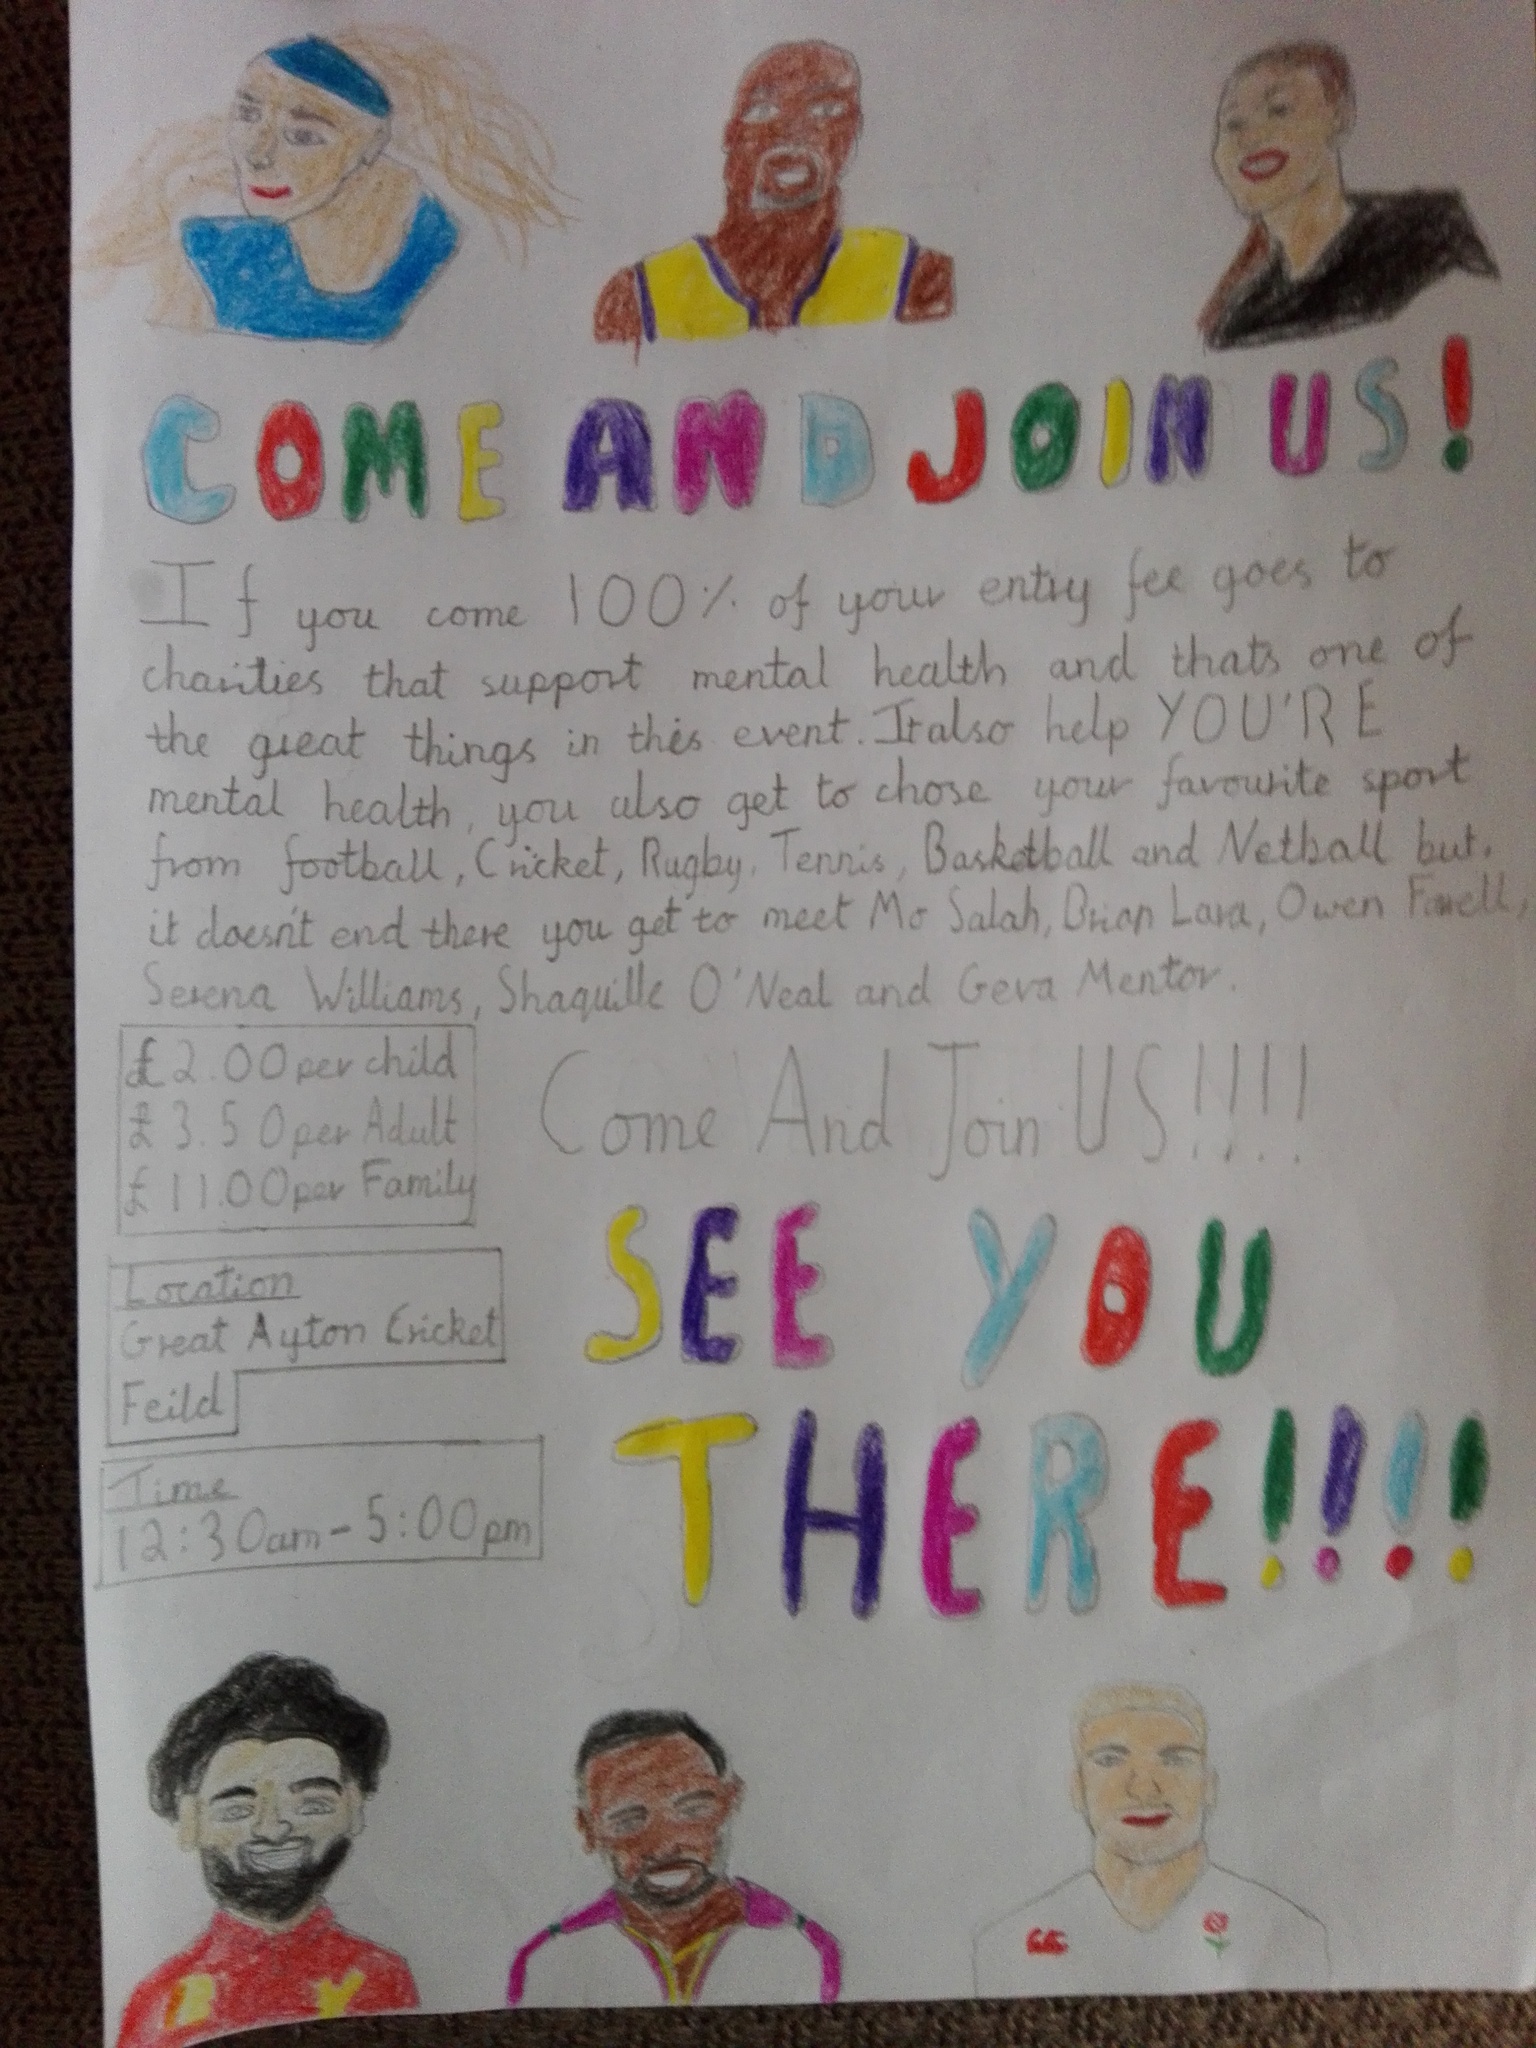 COME AND JOIN US!
If you come 100% of your entry fee goes to
charities that support mental health and thats one of
the great things in this event. It also help YOU'RE
mental health, you also get to chose your favourite sport
from football, Cricket, Rugby, Tennis, Basketball and Netball but.
it doesn't end there you get to meet Mo Salah, Brian Lara, Owen Farell,
Serena Williams, Shaquille O'Neal and Geva Mentor.
£2.00 per child
£3.50 per Adult
£11.00 per Family
Come And Join US!!!!
Location
Great Ayton Cricket
Feild
Time
12:30am - 5:00pm
SEE YOU
THERE!!!!